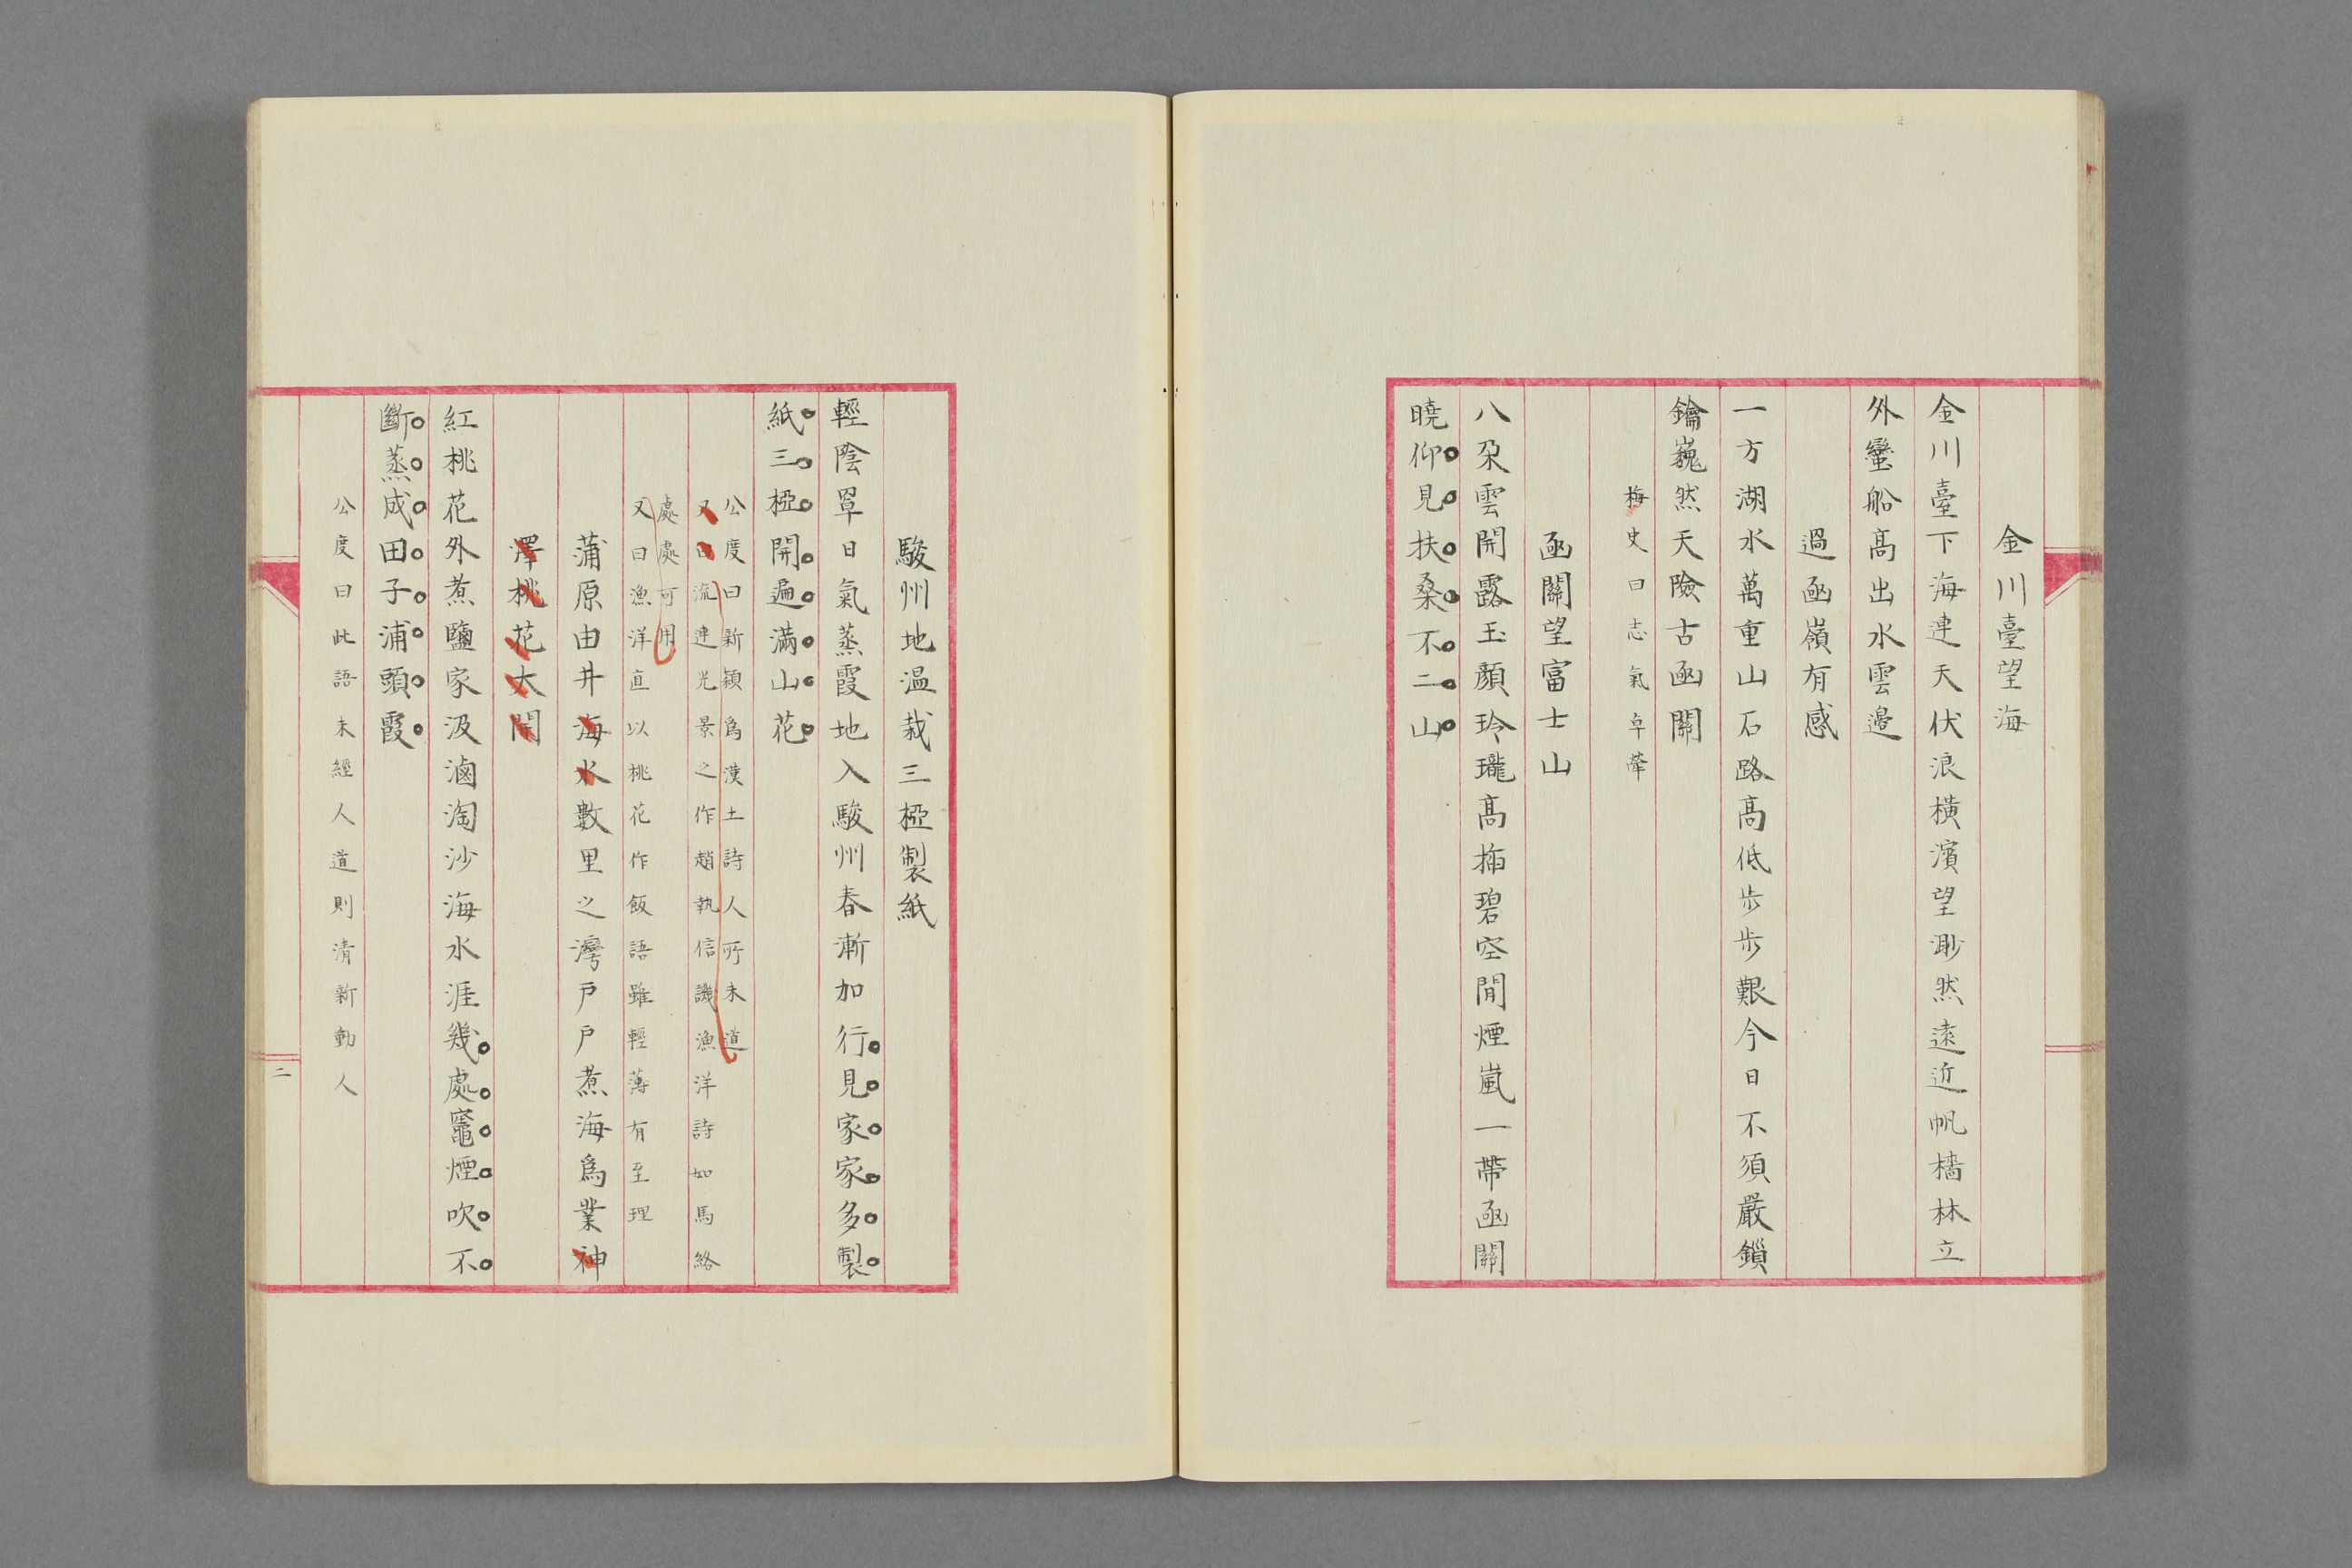 金川臺望海
金川臺下海連天伏浪橫濱望渺然遠近帆檣林立
外蠻船髙出水雲邊
過凾嶺有感
一方湖水萬重山石路髙低步步艱今日不須嚴鎖
鑰巍然天險古凾關
梅史曰志氣卓犖
凾關望富士山
八朶雲開露玉顏玲瓏髙揷碧空間煙嵐一帶凾關
曉仰見扶桑不二山
駿州地温栽三椏製紙
輕陰罩日氣蒸霞地入駿州春漸加行見家家多製
紙三椏開遍滿山花
公度曰新穎爲漢土詩人所未道
又曰流連光景之作趙執信譏漁洋詩如馬絡
處處可用
又曰漁洋直以桃花作飯語雖輕薄有至理
蒲原由井海水數里之灣戶戶煮海爲業神
澤桃花大開
紅桃花外煮鹽家汲滷淘沙海水涯幾處竈煙吹不
斷蒸成田子浦頭霞
公度曰此語未經人道則清新動人
二